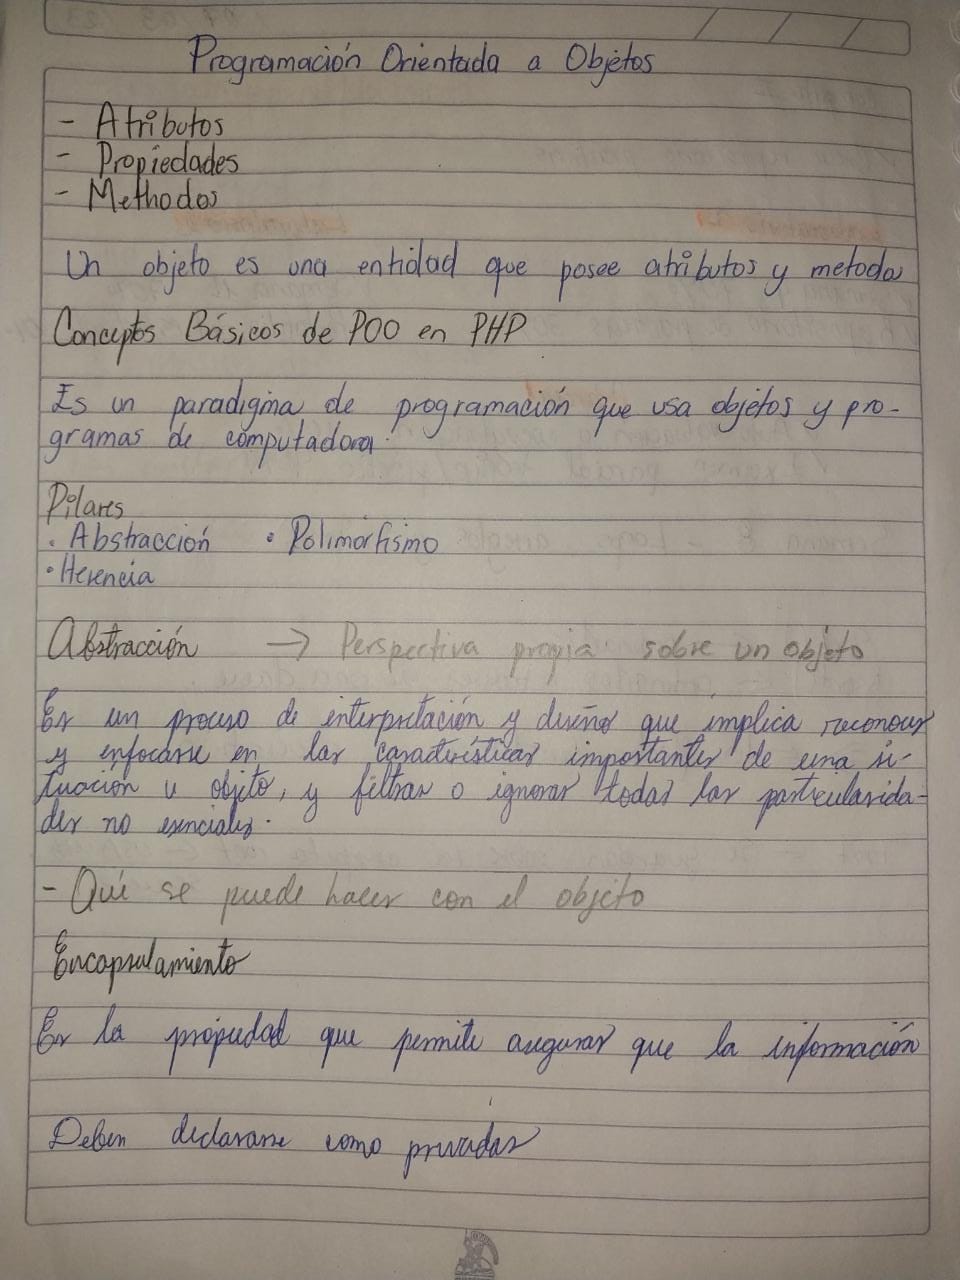 Programación Orientada a Objetos
- Atributos
- Propiedades
- Methodos
Un objeto es una entidad que posee atributos y metodos
Conceptos Básicos de POO en PHP
Es un paradigma de programación que usa objetos y pro-
gramas de computadora.
Pilares
• Abstracción • Polimorfismo
• Herencia
Abstracción → Perspectiva propia sobre un objeto
Es un proceso de interpretación y diseño que implica reconocer
y enfocarse en las características importantes de una si-
tuación u objeto, y filtrar o ignorar todas las particularida-
des no esenciales.
- Qué se puede hacer con el objeto
Encapsulamiento
Es la propiedad que permite asegurar que la información
Deben declararse como privadas